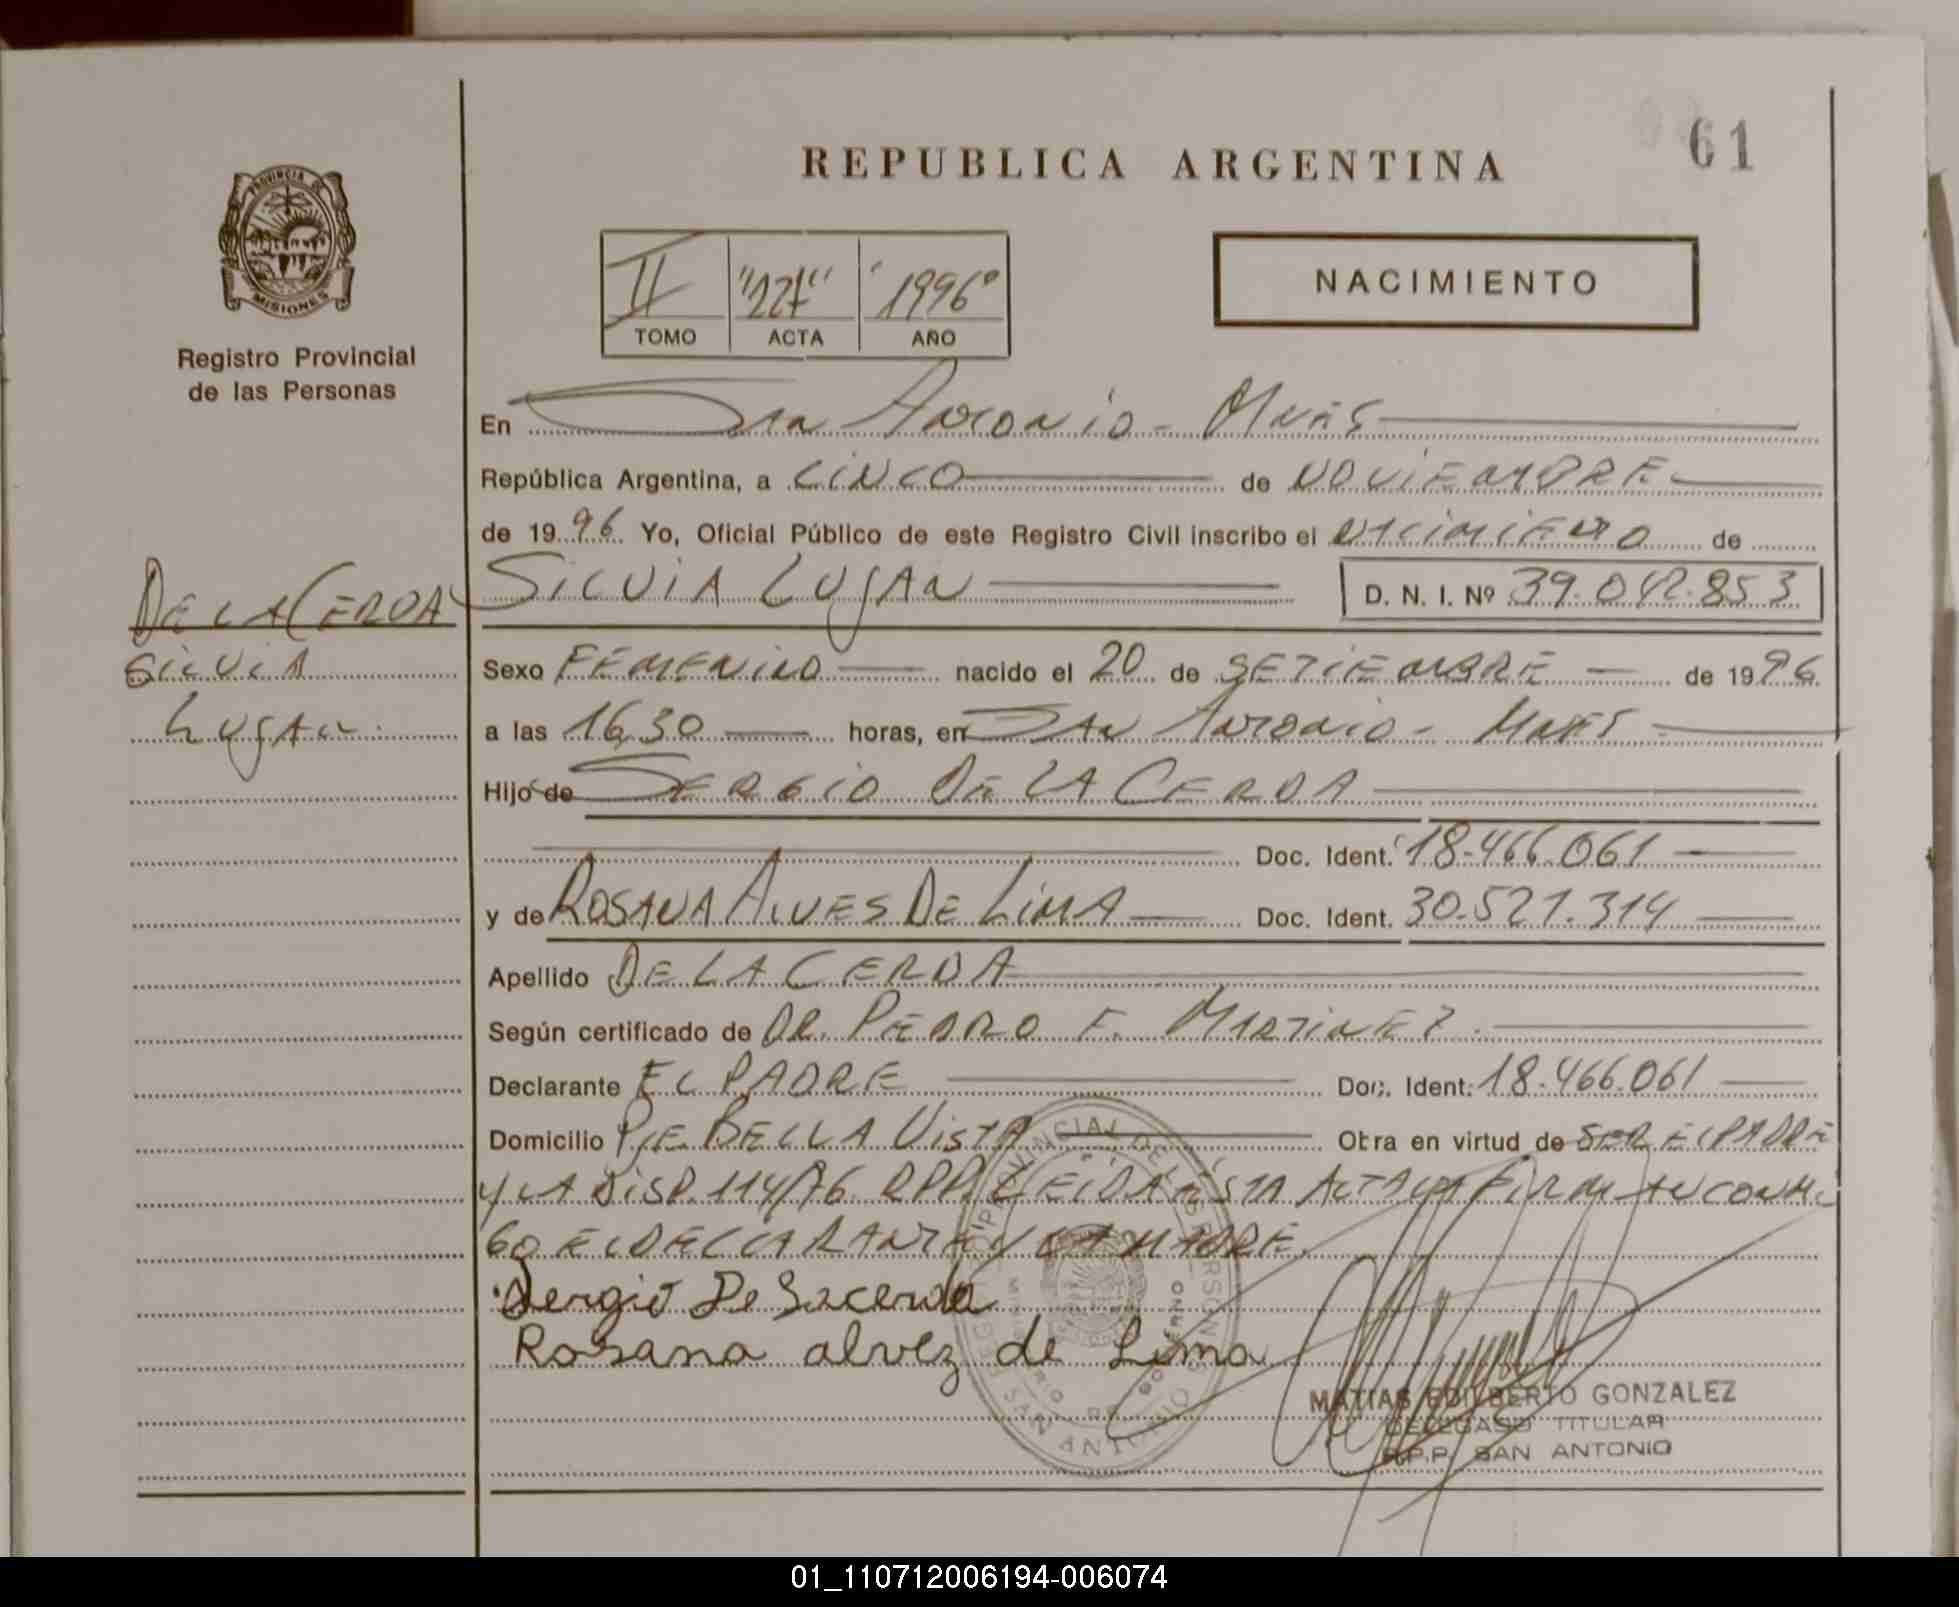 61
REPUBLICA ARGENTINA
PROVINCIA DE
MISIONES
Registro Provincial
de las Personas
II "227" 1996
TOMO ACTA AÑO
NACIMIENTO
En San Antonio - Mnes
República Argentina, a CINCO de NOVIEMBRE
de 1996 Yo, Oficial Público de este Registro Civil inscribo el NACIMIENTO de
DE LA CERDA
SILVIA
LUJAN
SILVIA LUJAN D. N. I. Nº 39.042.853
Sexo FEMENINO nacido el 20 de SETIEMBRE de 1996
a las 16,30 horas, en SAN ANTONIO - Mnes
Hijo de SERGIO DE LA CERDA
Doc. Ident. 18.466.061
y de ROSANA ALVES DE LIMA Doc. Ident. 30.521.314
Apellido DE LA CERDA
Según certificado de DR. PEDRO F. MARTINEZ
Declarante EL PADRE Doc. Ident. 18.466.061
Domicilio Pje. BELLA VISTA Otra en virtud de SER EL PADRE
Y LA DISP. 114/76 RPP. LEIDA ESTA ACTA LA FIRMAN CONMI
GO EL DECLARANTE Y LA MADRE.
Sergio De Lacerda
Rosana alvez de Lima
MATIAS EDILBERTO GONZALEZ
DELEGADO TITULAR
R.P.P. SAN ANTONIO
01_110712006194-006074